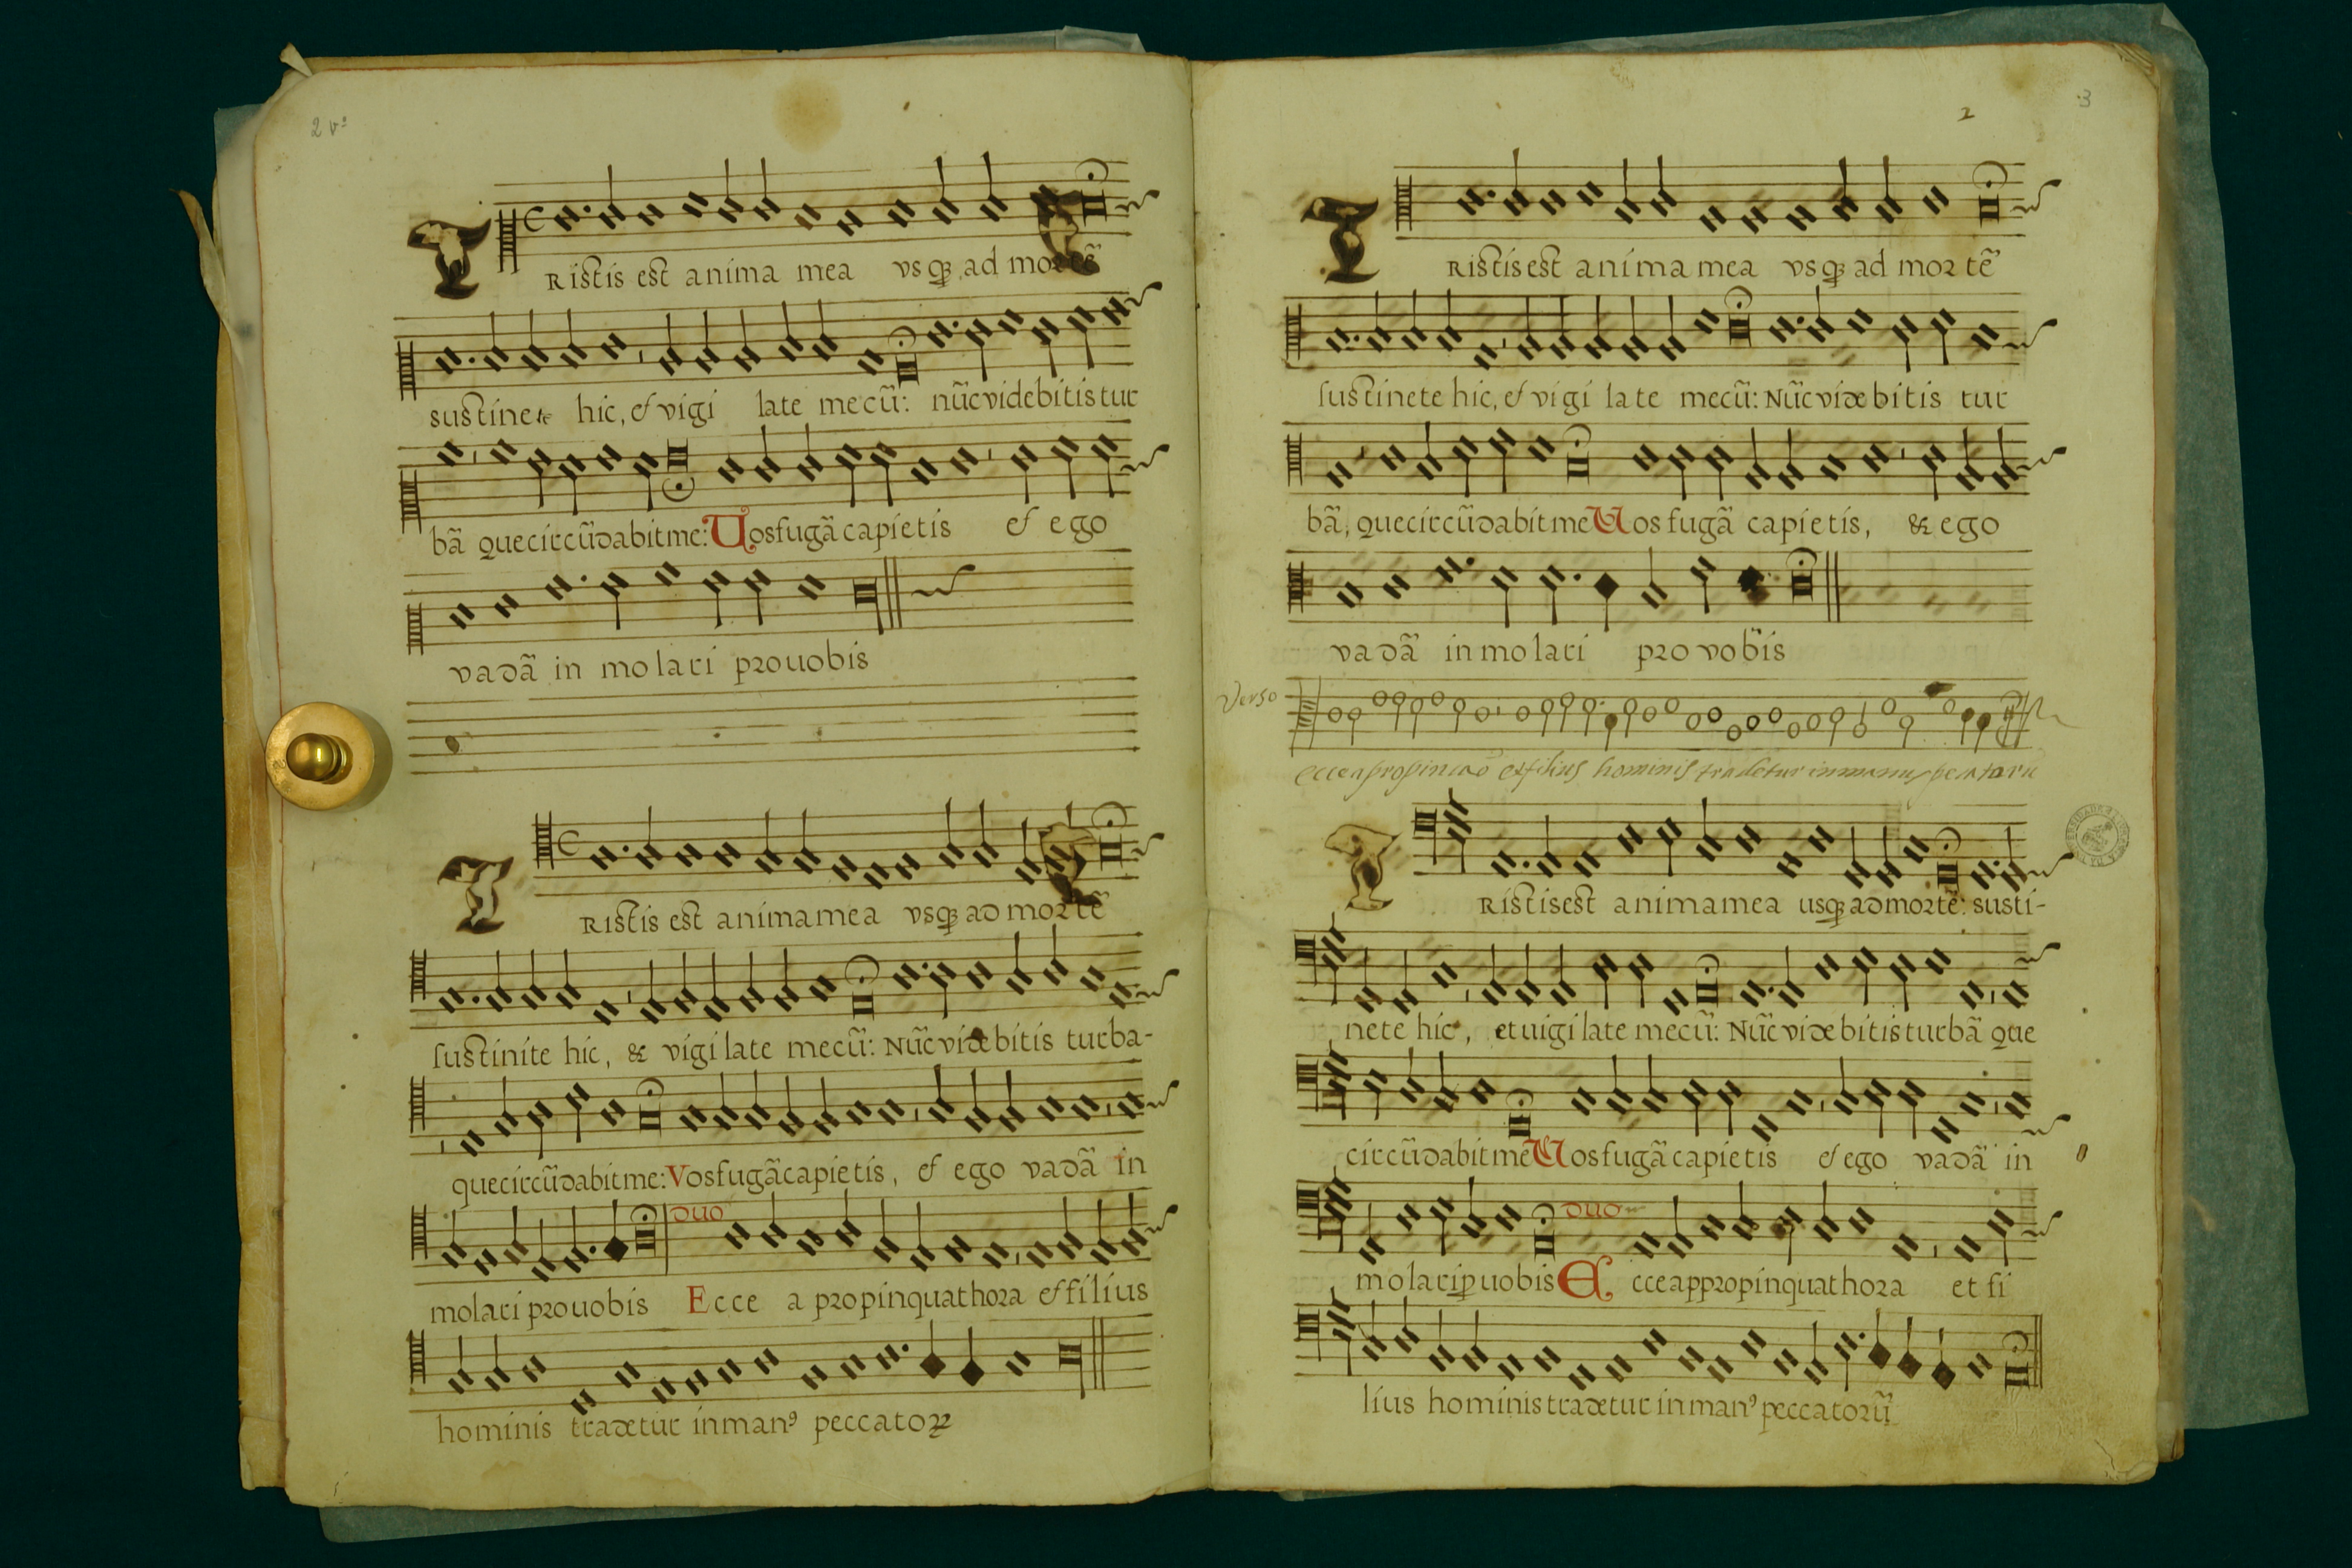 2 vº
Ristis est anima mea vsqꝫ ad mortẽ
sustinete hic, et vigi late mecũ: nũc videbitis tur
bã que circũdabit me: Uos fugã capietis et ego
vadã in molari pro uobis
Ristis est anima mea vsqꝫ ad mortẽ
sustinite hic, & vigilate mecũ: Nũc videbitis turba-
que circũdabit me: Vos fugã capietis, et ego vadã in
duo
molari pro uobis Ecce a propinquat hora et filius
hominis tradetur in manꝰ peccatoꝝ
2 3
TRistis est anima mea vsqꝫ ad mortẽ
sustinete hic, et vigi late mecũ: Nũc videbitis tur
bã, que circũdabit me Uos fugã capietis, & ego
vadã in molari pro vobis
Verso
et filius hominis tradetur in manus
TRistis est anima mea usqꝫ ad mortẽ: susti-
nete hic, et uigilate mecũ: Nũc videbitis turbã que
circũdabit me Uos fugã capietis et ego vadã in
duo
molari ꝓ uobis Ecce appropinquat hora et fi
lius hominis tradetur in manꝰ peccatorũ